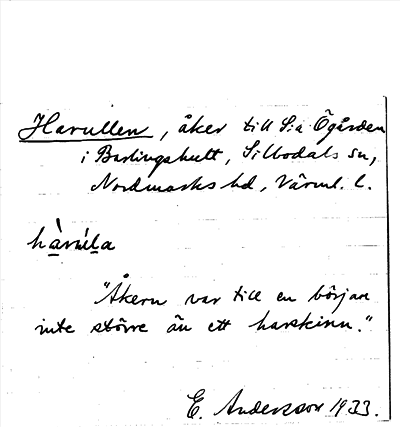 Harullen, åker till S:a Ögården
i Barlingshult, Sillbodals sn,
Nordmarks hd, Värml. l.
hàrúla
"Åkern var till en början
inte större än ett harskinn."
E. Andersson 1933.